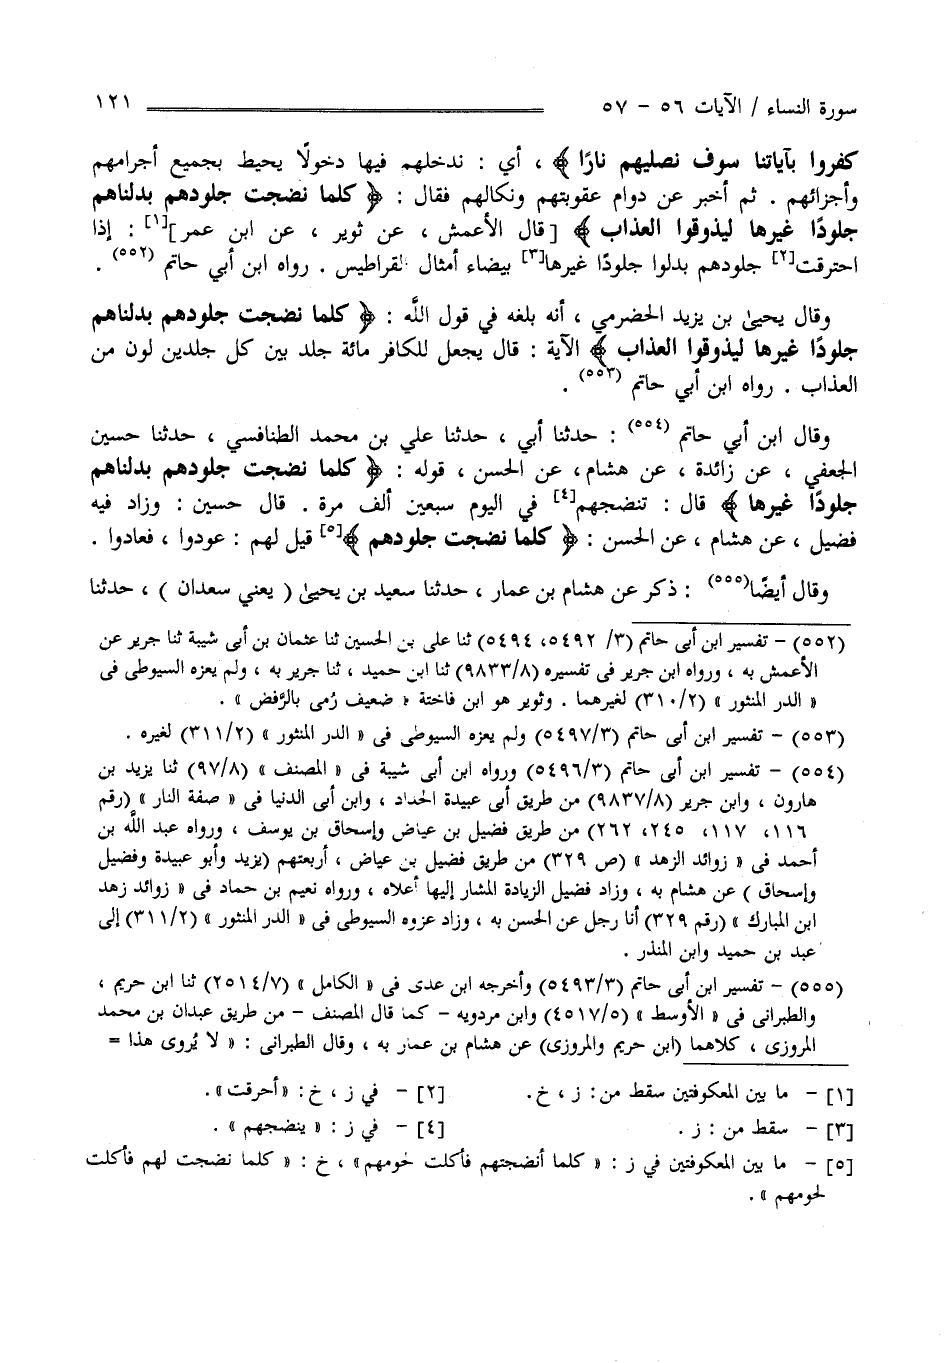 سورة النساء / الآيات ٥٦ - ٥٧ ١٢١
كفروا بآياتنا سوف نصليهم نارًا ﴾ ، أي : ندخلهم فيها دخولًا يحيط بجميع أجرامهم
وأجزائهم . ثم أخبر عن دوام عقوبتهم ونكالهم فقال : ﴿ كلما نضجت جلودهم بدلناهم
جلودًا غيرها ليذوقوا العذاب ﴾ [ قال الأعمش ، عن ثوير ، عن ابن عمر ][١] : إذا
احترقت[٢] جلودهم بدلوا جلودًا غيرها[٣] بيضاء أمثال القراطيس . رواه ابن أبي حاتم (٥٥٢) .
وقال يحيىٰ بن يزيد الحضرمي ، أنه بلغه في قول اللَّه : ﴿ كلما نضجت جلودهم بدلناهم
جلودًا غيرها ليذوقوا العذاب ﴾ الآية : قال يجعل للكافر مائة جلد بين كل جلدين لون من
العذاب . رواه ابن أبي حاتم (٥٥٣) .
وقال ابن أبي حاتم (٥٥٤) : حدثنا أبي ، حدثنا علي بن محمد الطنافسي ، حدثنا حسين
الجعفي ، عن زائدة ، عن هشام ، عن الحسن ، قوله : ﴿ كلما نضجت جلودهم بدلناهم
جلودًا غيرها ﴾ قال : تنضجهم[٤] في اليوم سبعين ألف مرة . قال حسين : وزاد فيه
فضيل ، عن هشام ، عن الحسن : ﴿ كلما نضجت جلودهم ﴾[٥] قيل لهم : عودوا ، فعادوا .
وقال أيضًا(٥٥٥) : ذكر عن هشام بن عمار ، حدثنا سعيد بن يحيىٰ ( يعني سعدان ) ، حدثنا
(٥٥٢) - تفسير ابن أبى حاتم (٣/ ٥٤٩٢، ٥٤٩٤) ثنا على بن الحسين ثنا عثمان بن أبى شيبة ثنا جرير عن
الأعمش به ، ورواه ابن جرير فى تفسيره (٩٨٣٣/٨) ثنا ابن حميد ، ثنا جرير به ، ولم يعزه السيوطى فى
« الدر المنثور » (٣١٠/٢) لغيرهما . وثوير هو ابن فاختة « ضعيف رُمى بالرَّفض » .
(٥٥٣) - تفسير ابن أبى حاتم (٥٤٩٧/٣) ولم يعزه السيوطى فى « الدر المنثور » (٣١١/٢) لغيره .
(٥٥٤) - تفسير ابن أبى حاتم (٥٤٩٦/٣) ورواه ابن أبى شيبة فى « المصنف » (٩٧/٨) ثنا يزيد بن
هارون ، وابن جرير (٩٨٣٧/٨) من طريق أبى عبيدة الحداد ، وابن أبى الدنيا فى « صفة النار » (رقم
١١٦، ١١٧، ٢٤٥، ٢٦٢) من طريق فضيل بن عياض وإسحاق بن يوسف ، ورواه عبد اللَّه بن
أحمد فى « زوائد الزهد » (ص ٣٢٩) من طريق فضيل بن عياض ، أربعتهم (يزيد وأبو عبيدة وفضيل
وإسحاق ) عن هشام به ، وزاد فضيل الزيادة المشار إليها أعلاه ، ورواه نعيم بن حماد فى « زوائد زهد
ابن المبارك » (رقم ٣٢٩) أنا رجل عن الحسن به ، وزاد عزوه السيوطى فى « الدر المنثور » (٣١١/٢) إلى
عبد بن حميد وابن المنذر .
(٥٥٥) - تفسير ابن أبى حاتم (٥٤٩٣/٣) وأخرجه ابن عدى فى « الكامل » (٢٥١٤/٧) ثنا ابن حريم ،
والطبرانى فى « الأوسط » (٤٥١٧/٥) وابن مردويه - كما قال المصنف - من طريق عبدان بن محمد
المروزى ، كلاهما (ابن حريم والمروزى) عن هشام بن عمار به ، وقال الطبرانى : « لا يُروى هذا =
[١] - ما بين المعكوفتين سقط من: ز ، خ. [٢] - في ز ، خ: «أحرقت».
[٣] - سقط من : ز . [٤] - في ز : « ينضجهم » .
[٥] - ما بين المعكوفتين في ز : « كلما أنضجتهم فأكلت لحومهم» ، خ : « كلما نضجت لهم فأكلت
لحومهم » .